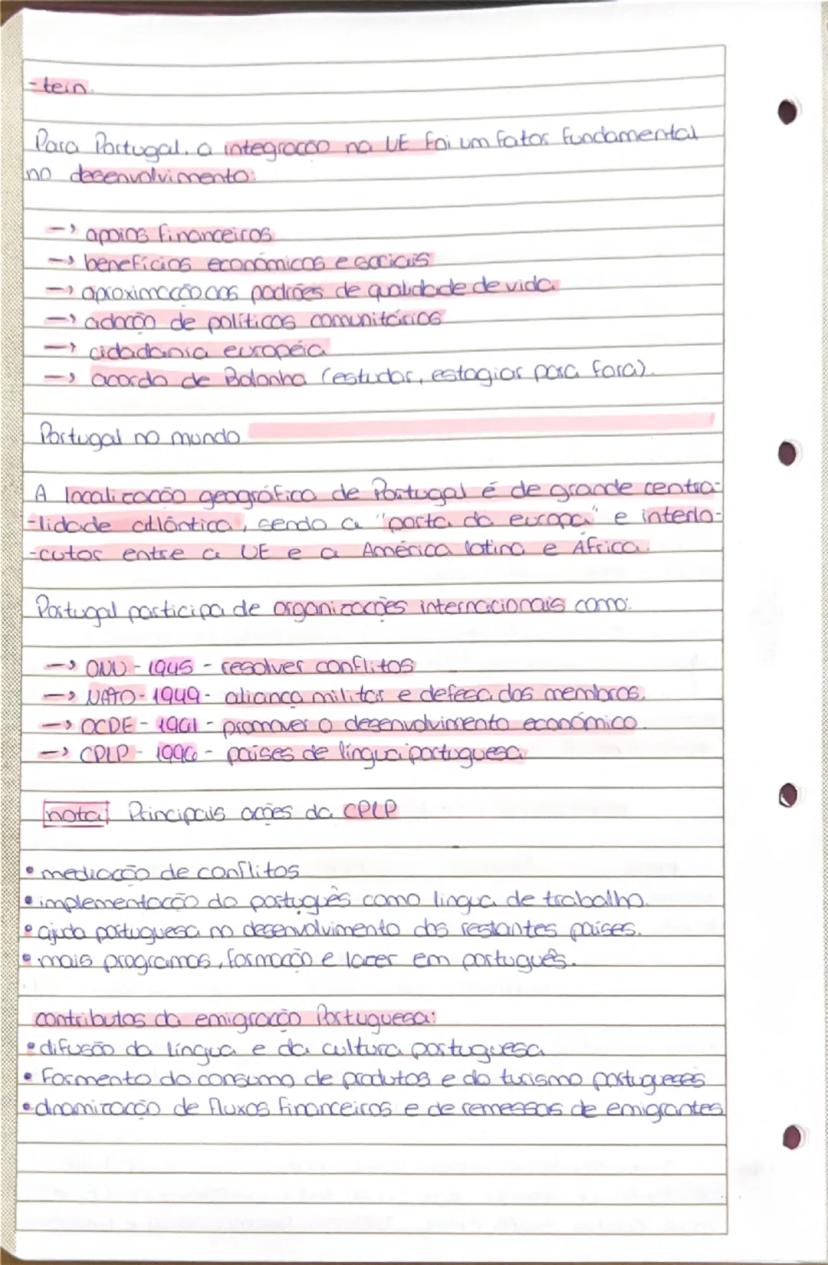 -tein.
Para Portugal, a integração na UE foi um fator fundamental
no desenvolvimento:
→ apoios financeiros
→ benefícios económicos e sociais
→ aproximação aos padrões de qualidade de vida
→ adoção de políticas comunitárias
→ cidadania européia
→ acordo de Bolonha (estudar, estagiar para fora).
Portugal no mundo
A localização geográfica de Portugal é de grande centra-
-lidade atlântica, sendo a "porta da europa" e interlo-
-cutor entre a UE e a América latina e África.
Portugal participa de organizações internacionais como:
→ ONU - 1945 - resolver conflitos
→ NATO - 1949 - aliança militar e defesa dos membros.
→ OCDE - 1961 - promover o desenvolvimento económico.
→ CPLP - 1996 - países de língua portuguesa
nota: Principais ações da CPLP
• mediação de conflitos
• implementação do português como lingua de trabalho.
• ajuda portuguesa no desenvolvimento dos restantes países.
• mais programas, formação e lazer em português.
contributos da emigração Portuguesa:
• difusão da língua e da cultura portuguesa
• formento do consumo de produtos e do turismo portugueses
• dinamização de fluxos financeiros e de remessas de emigrantes